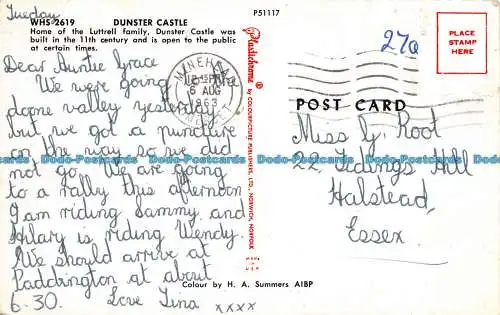 Tuesday
WHS-2619 DUNSTER CASTLE
Home of the Luttrell family, Dunster Castle was
built in the 11th century and is open to the public
at certain times.
Dear Auntie Grace
We were going to the
doone valley yesterday
but we got a puncture
on the way so we did
not go. We are going
to a rally this afternoon
I am riding Sammy and
Hilary is riding Wendy.
We should arrive at
Paddington at about
6-30. Love Tina xxxx
P51117
MINEHEAD
12 15 PM
6 AUG
1963
SOMERSET
Plastichrome ®
by COLOURPICTURE PUBLISHERS, LTD., NORWICH, NORFOLK
Colour by H. A. Summers AIBP
27a
PLACE
STAMP
HERE
POST CARD
Miss G. Root
22, Tidings Hill
Halstead,
Essex.
Dodo-Postcards Dodo-Postcards Dodo-Postcards Dodo-Postcards